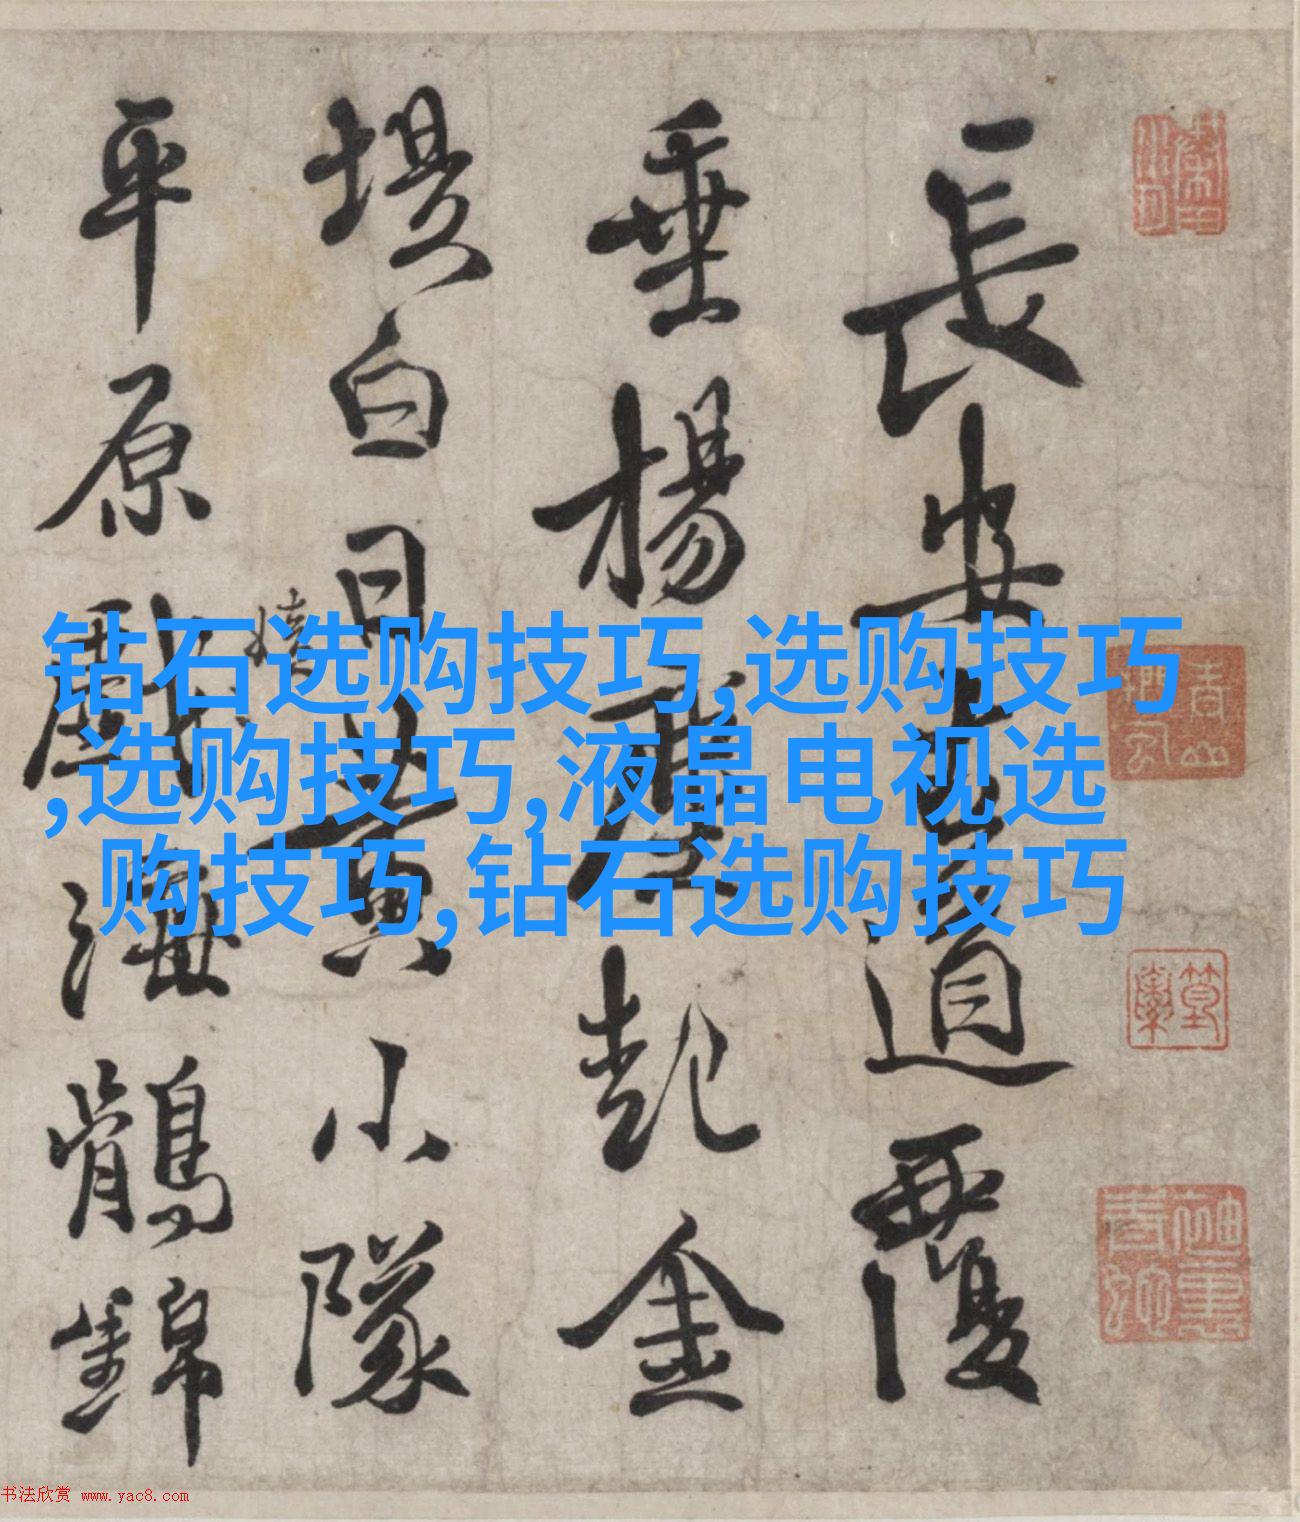 長安道覆
垂楊起金
堤白日小隊
平原戲海鶻錦
钻石选购技巧,选购技巧
,选购技巧,液晶电视选
购技巧,钻石选购技巧
书法欣赏 www.yac8.com